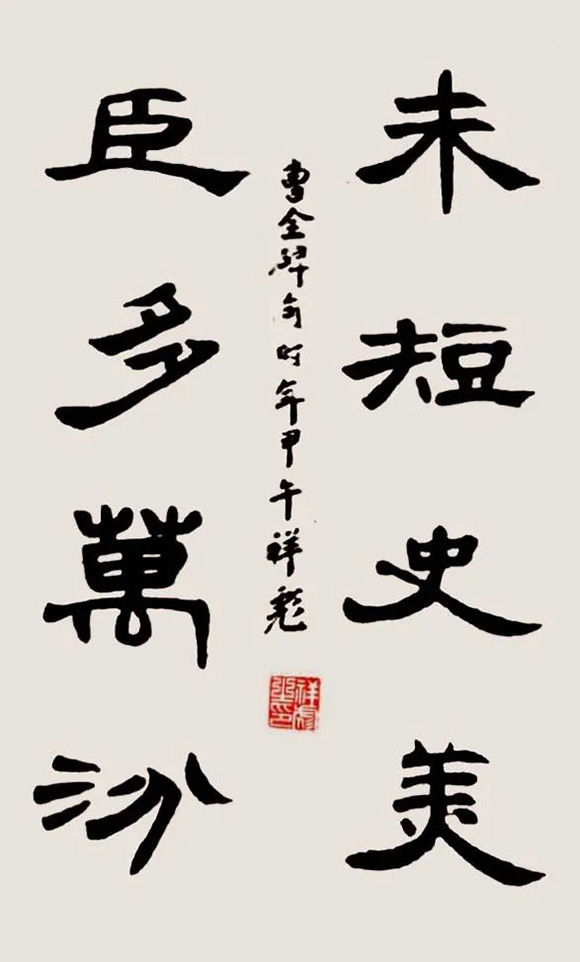 未短史美
曹全碑时年甲午祥彪
臣多萬汾
祥彪